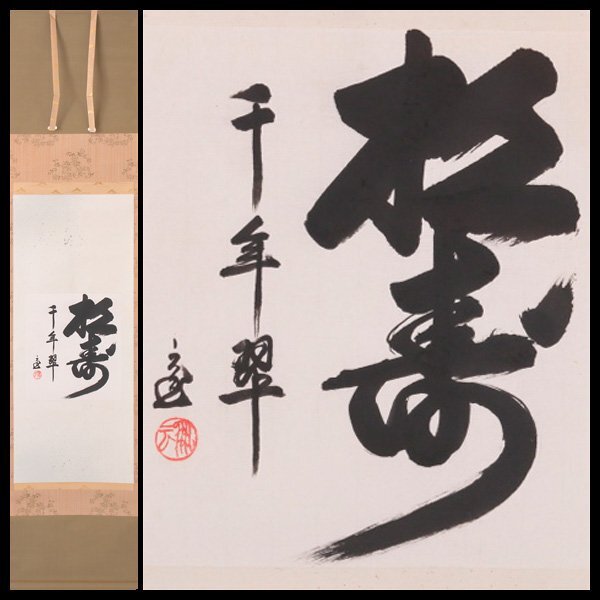 松寿
千年翠